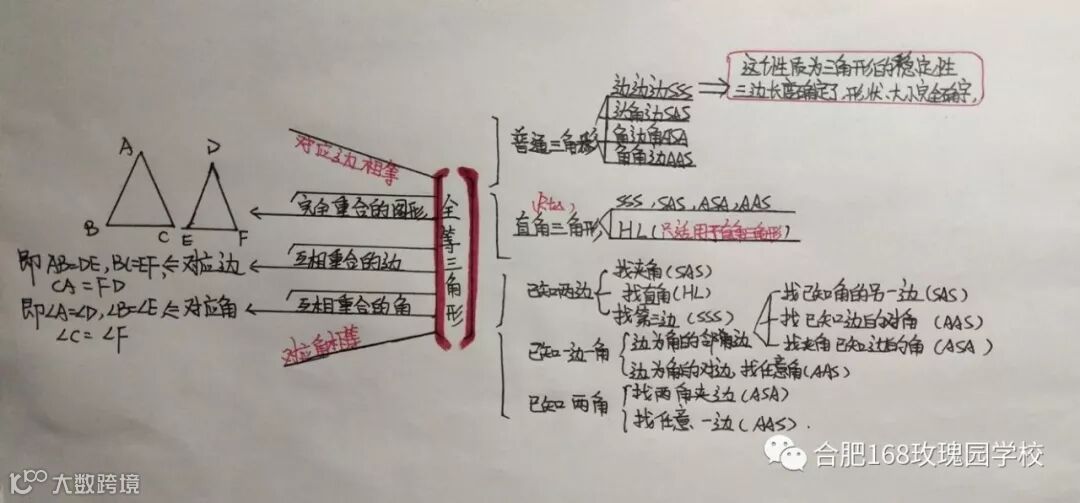 A
D
B
C
E
F
即 AB=DE, BC=EF, ⇐ 对应边
CA=FD
即∠A=∠D, ∠B=∠E ⇐ 对应角
∠C=∠F
对应边相等
完全重合的图形
互相重合的边
互相重合的角
对应角相等
全等三角形
普通三角形
边边边SSS
边角边SAS
角边角ASA
角角边AAS
这个性质为三角形的稳定性
三边长度确定了,形状、大小完全确定,
(Rt△)
直角三角形
SSS, SAS, ASA, AAS
HL(只适用于直角三角形)
已知两边
找夹角(SAS)
找直角(HL)
找第三边(SSS)
已知一边一角
边为角的邻边
找已知角的另一边(SAS)
找已知边的对角(AAS)
找夹角已知边的角(ASA)
边为角的对边,找任意角(AAS)
已知两角
找两角夹边(ASA)
找任意一边(AAS).
合肥168玫瑰园学校
大数跨境